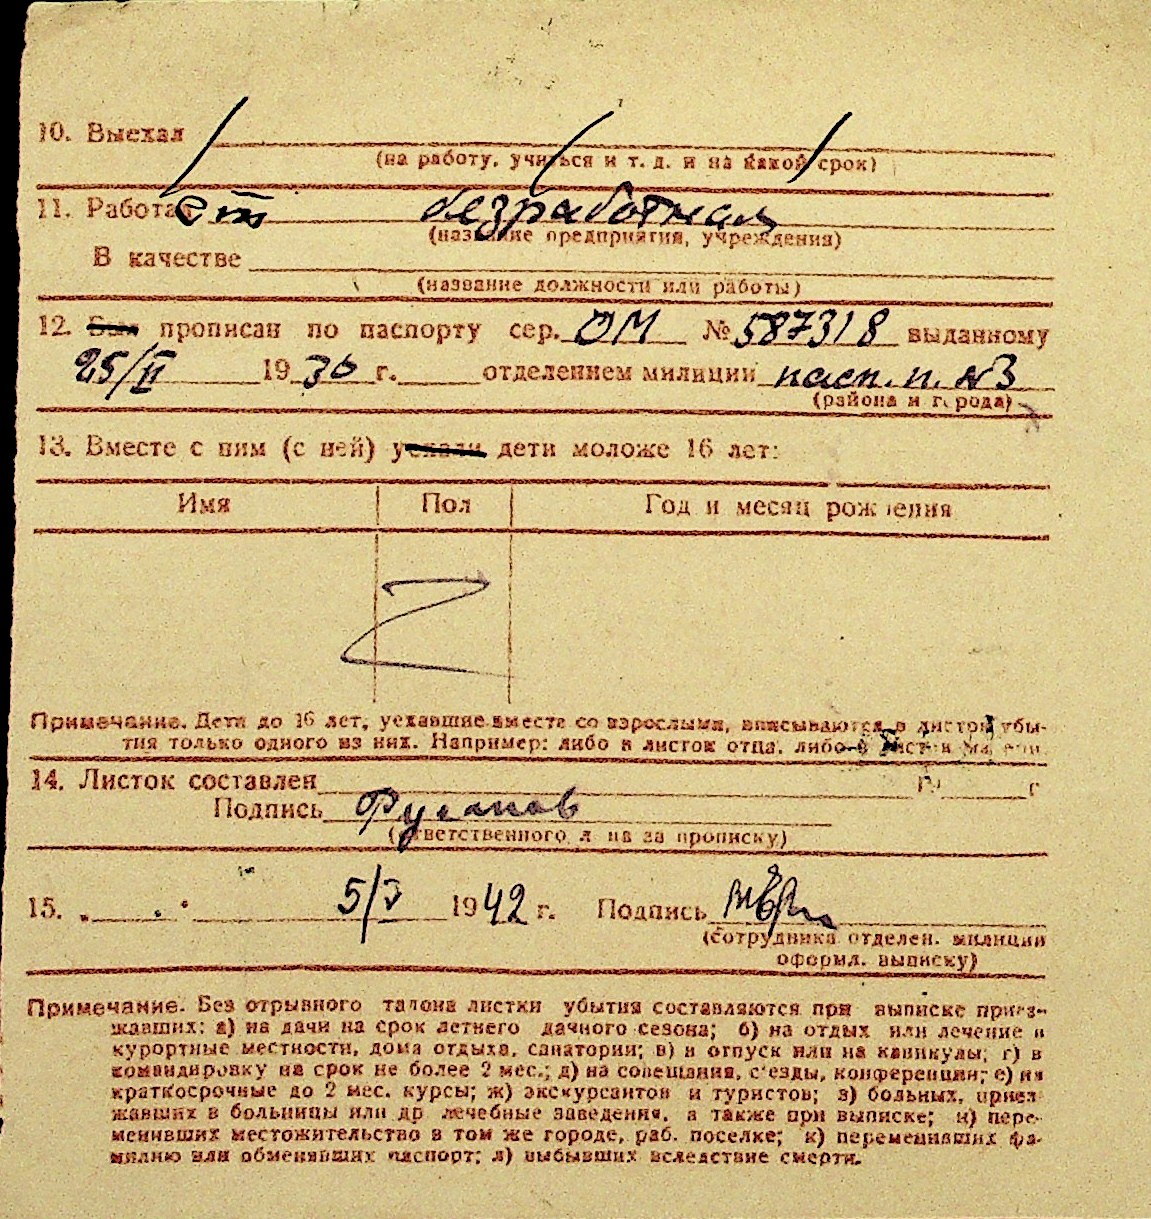 10. Выехал
(на работу, учиться и т. д. и на какой срок)
11. Работа ет безработная
(название предприятия, учреждения)
В качестве
(название должности или работы)
12. Был прописан по паспорту сер. ОМ № 587318 выданному
25/II 19 36 г. отделением милиции пасп. п. №3
(района и города)
13. Вместе с ним (с ней) уехали дети моложе 16 лет:
Имя Пол Год и месяц рождения
Примечание. Дети до 16 лет, уехавшие вместе со взрослыми, вписываются в листок убы-
тия только одного из них. Например: либо в листок отца, либо в листок матери.
14. Листок составлен г.
Подпись
(ответственного лица за прописку)
15. „ “ 5/V 1942 г. Подпись
(сотрудника отделен. милиции
оформл. выписку)
Примечание. Без отрывного талона листки убытия составляются при выписке приез-
жавших: а) на дачи на срок летнего дачного сезона; б) на отдых или лечение в
курортные местности, дома отдыха, санатории; в) в отпуск или на каникулы; г) в
командировку на срок не более 2 мес.; д) на совещания, с'езды, конференции; е) на
краткосрочные до 2 мес. курсы; ж) экскурсантов и туристов; з) больных, приез-
жавших в больницы или др лечебные заведения, а также при выписке; и) пере-
менивших местожительство в том же городе, раб. поселке; к) переменивших фа-
милию или обменявших паспорт; л) выбывших вследствие смерти.